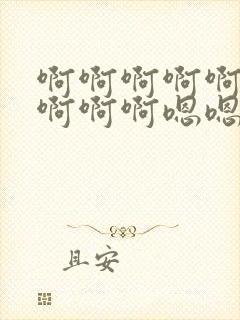 啊啊啊啊啊
啊啊啊嗯嗯
且安